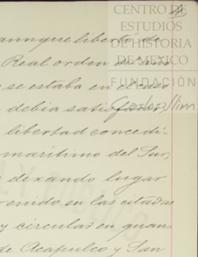 CENTRO DE
ESTUDIOS
DE HISTORIA
DE MEXICO
FUNDACIÓN
Carlos Slim
aunque libertó de
Real orden
se estaba en el caso
debia satisfacer
libertad concedi-
maritimo del Sur,
dexando lugar
en las citadas
y circulas en quan-
de Acapulco y San